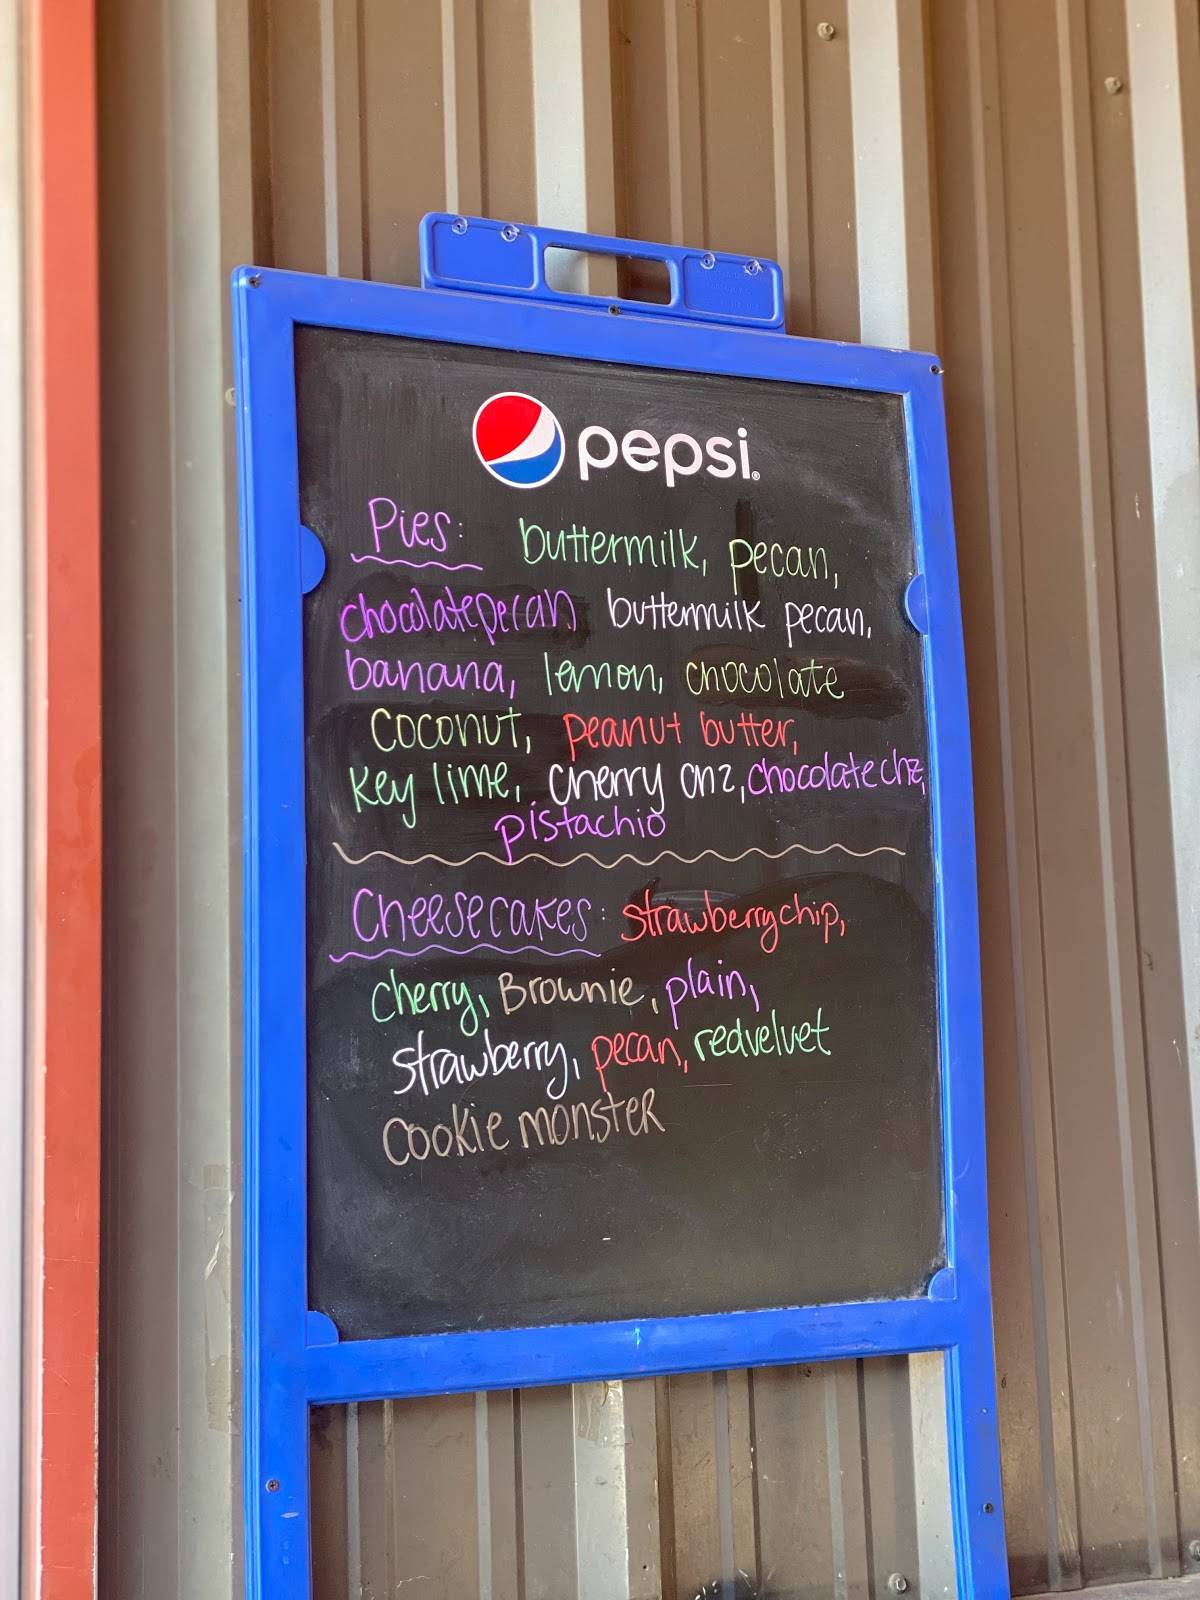 pepsi
Pies: buttermilk, pecan,
chocolate pecan buttermilk pecan,
banana, lemon, chocolate
coconut, peanut butter,
key lime, cherry chz, chocolate chz,
pistachio
Cheesecakes: strawberry chip,
cherry, Brownie, plain,
strawberry, pecan, redvelvet
Cookie monster